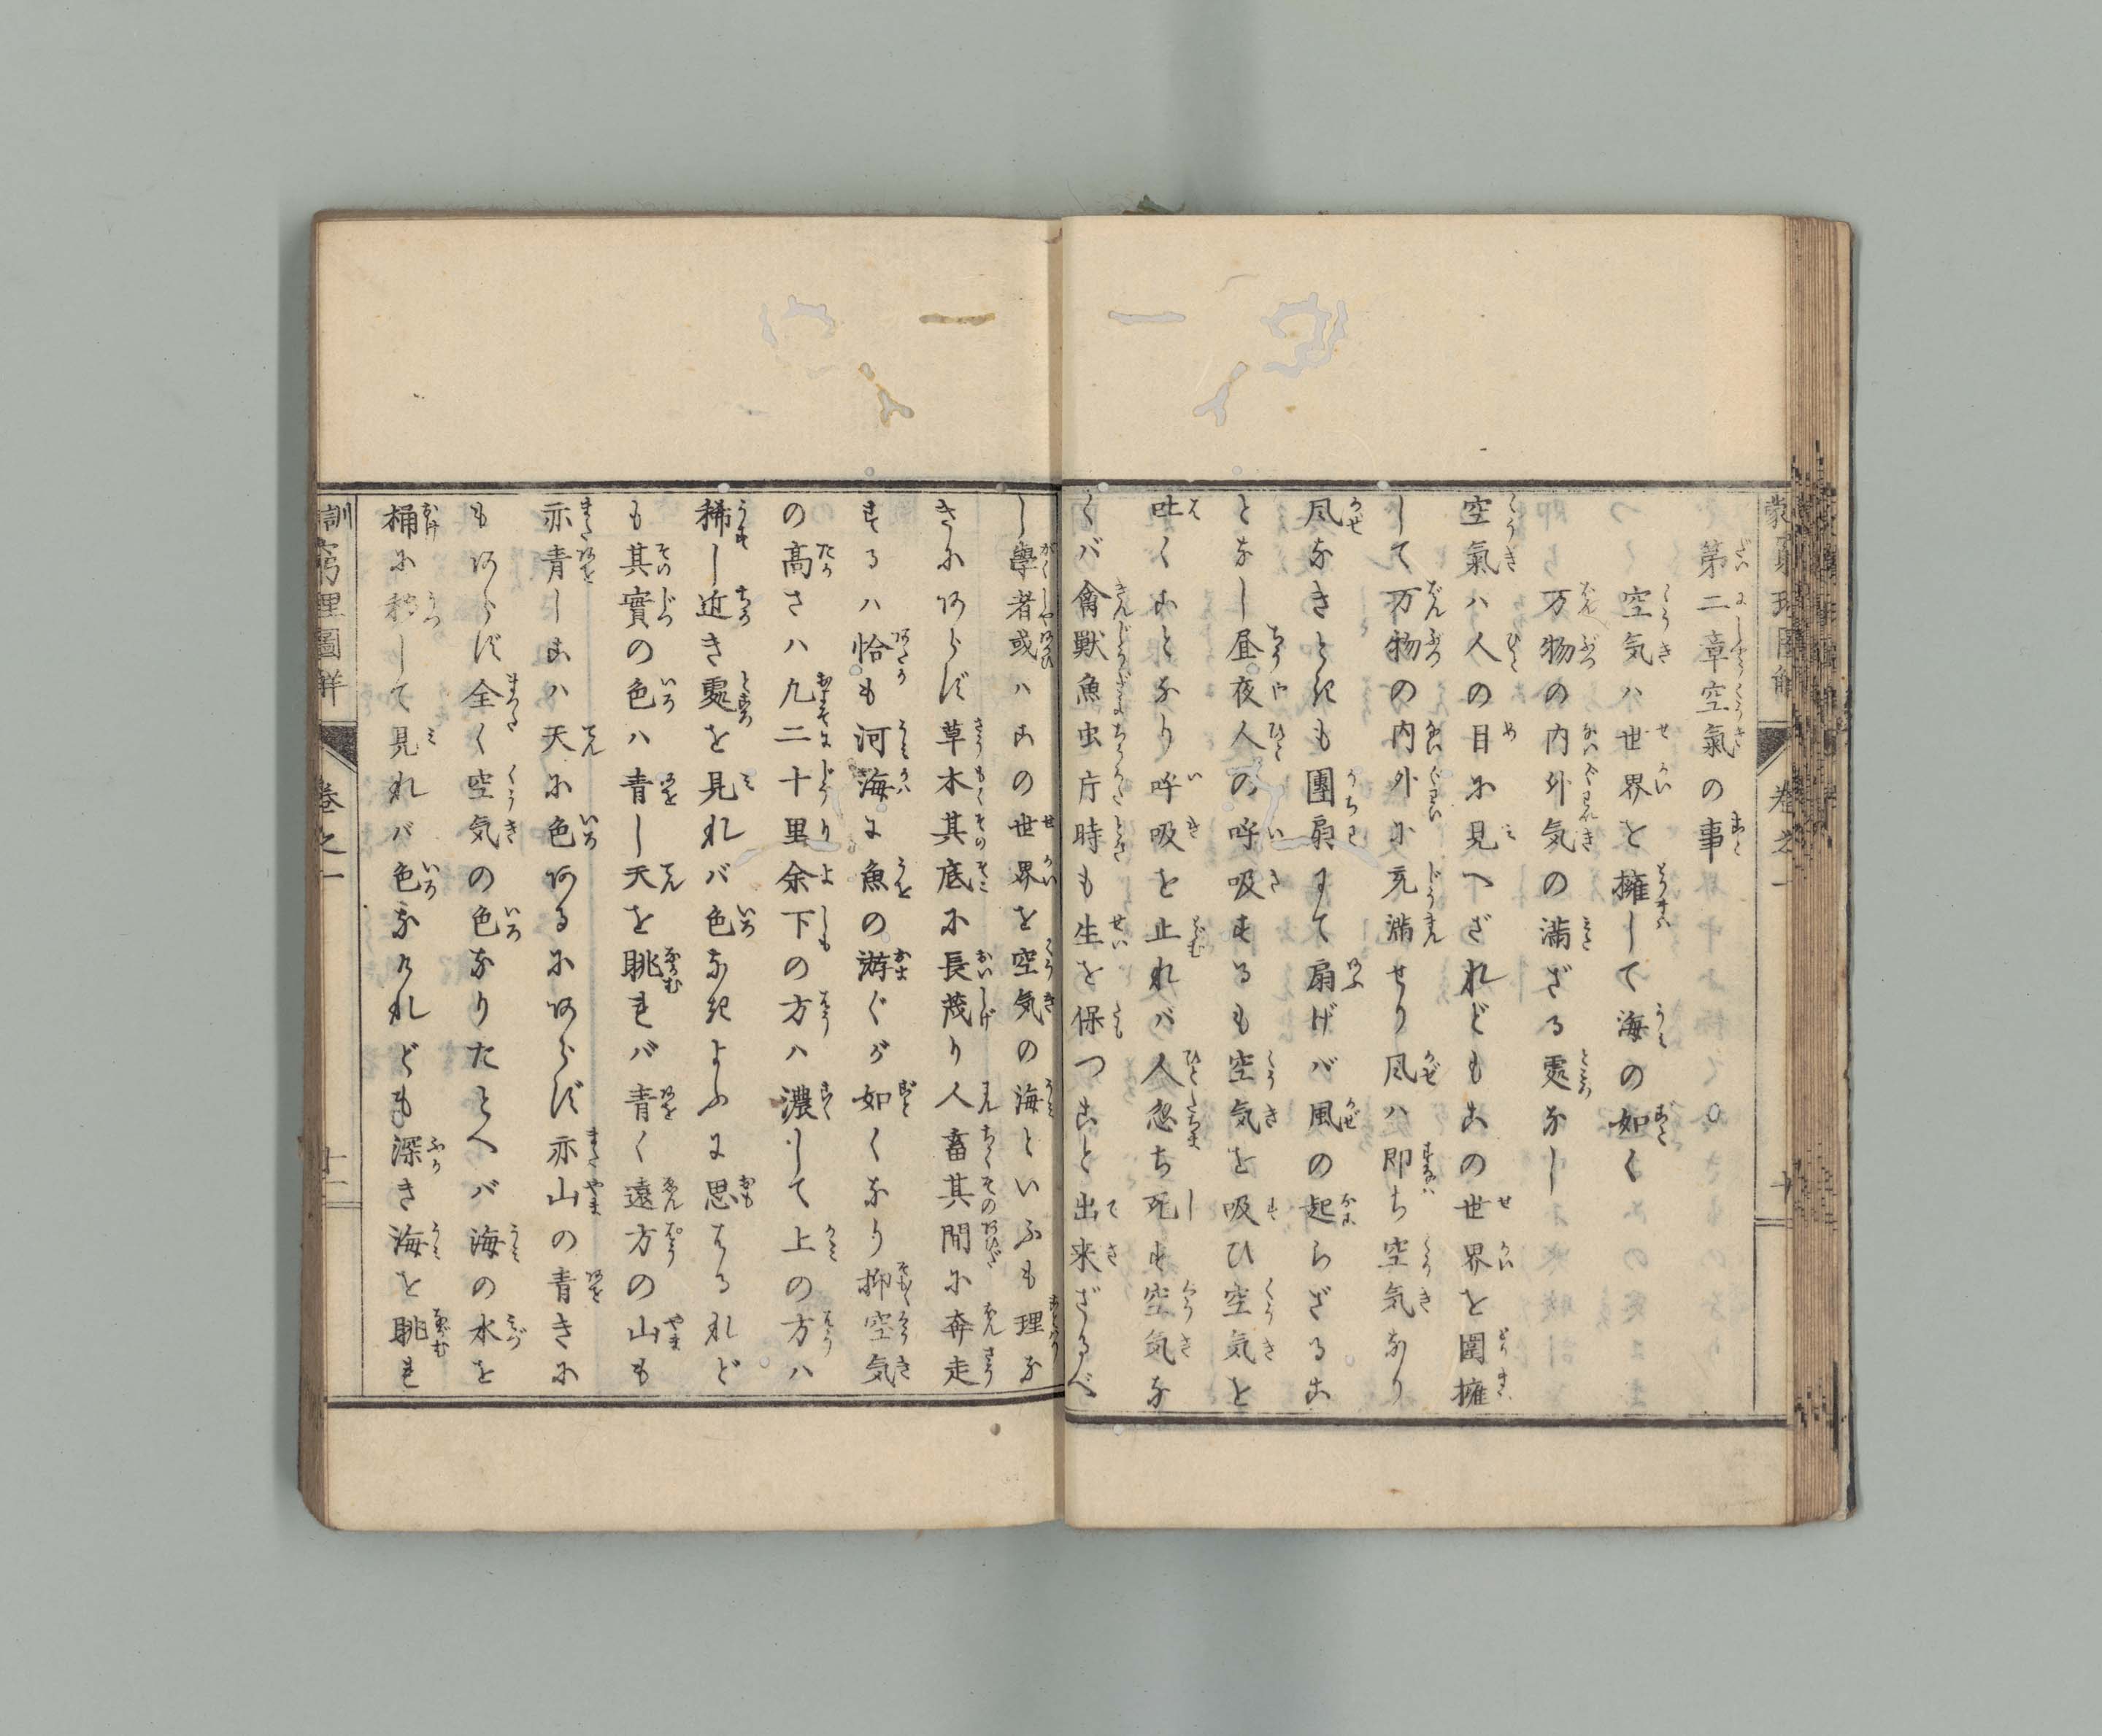 第二章空氣の事
空気ハ世界を擁して海の如く
万物の内外気の満ざる処なし
空氣ハ人の目に見へざれどもこの世界を圍擁
して万物の内外に充満せり風ハ即ち空気なり
風なきときも團扇にて扇げバ風の起らざるこ
となし昼夜人の呼吸するも空気を吸ひ空気を
吐くことなり呼吸を止れバ人忽ち死す空気な
くバ禽獣魚虫片時も生を保つこと出来ざるべ
し學者或ハこの世界を空気の海といふも理な
きにあらず草木其底に長茂り人畜其間に奔走
するハ恰も河海に魚の游ぐが如くなり抑空気
の高さハ凡二十里余下の方ハ濃して上の方ハ
稀し近き處を見れバ色なきよふに思はるれど
も其實の色ハ青し天を眺れバ青く遠方の山も
亦青しこハ天に色あるにあらず亦山の青きに
もあらず全く空気の色なりたとへバ海の水を
桶に移して見れバ色なけれども深き海を眺れ
訓窮理圖解
卷之一
十一